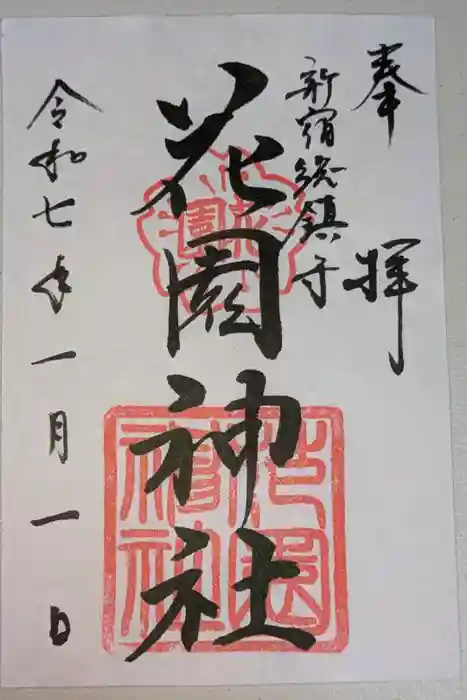 奉拝
新宿総鎮守
花園神社
令和七年一月一日
花園神社